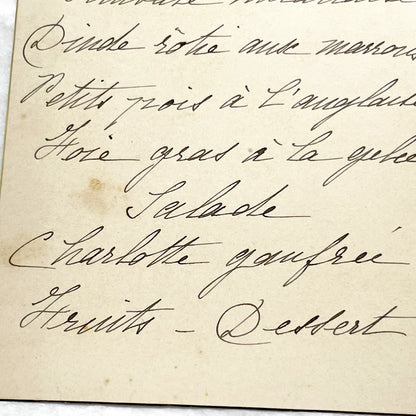 Dinde rôtie aux marrons
Petits pois à l'anglaise
Foie gras à la gelée
Salade
Charlotte gaufrée
Fruits - Dessert